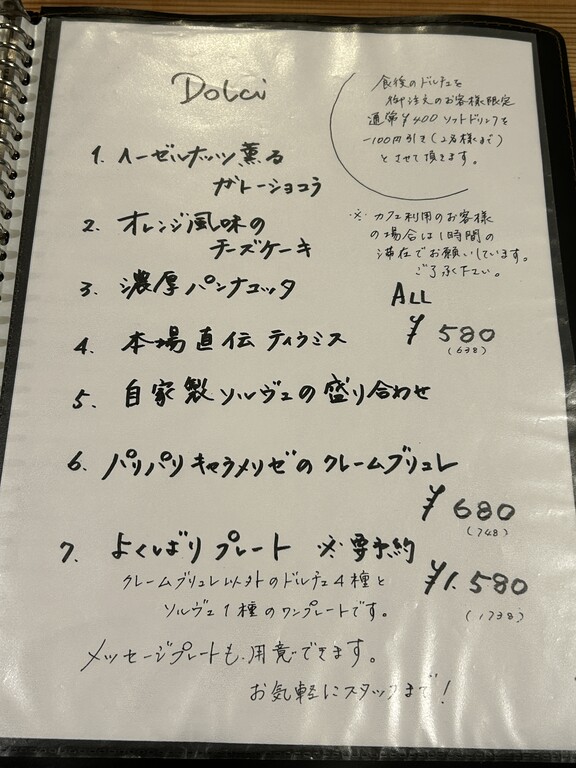 Dolci
食後のドルチェを
御注文のお客様限定
通常¥400ソフトドリンクを
-100円引き(2名様まで)
とさせて頂きます。
1. ヘーゼルナッツ薫る
ガトーショコラ
※カフェ利用のお客様
の場合は1時間の
滞在でお願いしています。
ご了承ください。
2. オレンジ風味の
チーズケーキ
3. 濃厚パンナコッタ
ALL
¥580
(638)
4. 本場直伝ティラミス
5. 自家製ソルヴェの盛り合わせ
6. パリパリキャラメリゼのクレームブリュレ
¥680
(748)
7. よくばりプレート ※要予約
¥1.580
(1738)
クレームブリュレ以外のドルチェ4種と
ソルヴェ1種のワンプレートです。
メッセージプレートも用意できます。
お気軽にスタッフまで!